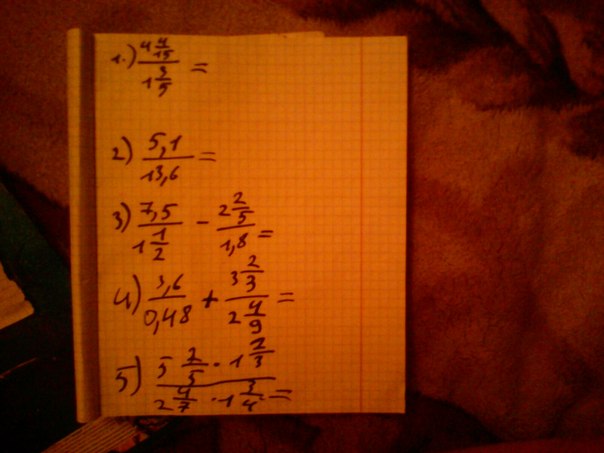 1.) 4 4/15 / 1 3/5 =
2) 5,1 / 13,6 =
3) 7,5 / 1 1/2 - 2 2/5 / 1,8 =
4) 3,6 / 0,48 + 3 2/3 / 2 4/9 =
5) 5 2/5 · 1 2/3 / 2 4/7 · 1 3/4 =